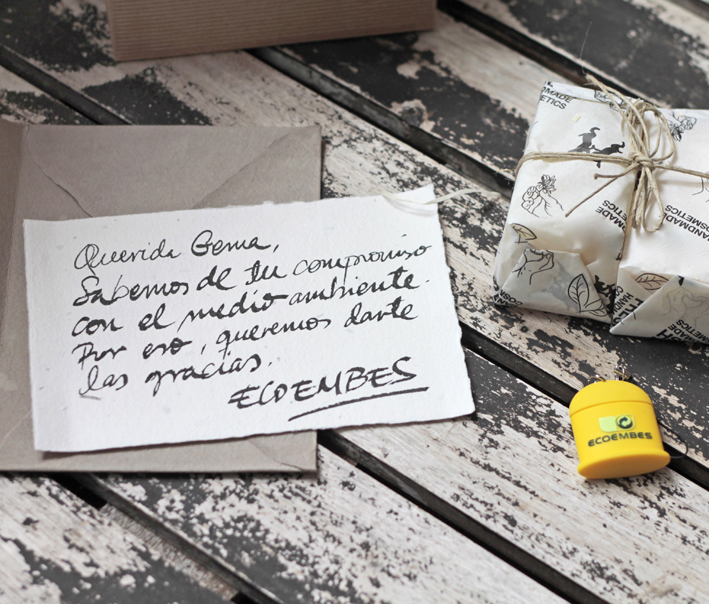 Querida Gema,
Sabemos de tu compromiso
con el medio ambiente.
Por eso, queremos darte
las gracias.
ECOEMBES
HANDMADE
COSMETICS
HANDMADE
COSMETICS
ECOEMBES